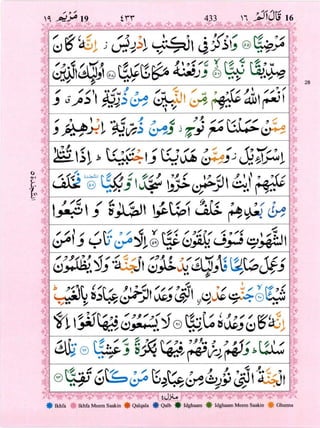 ١٩ مَرْيَم 19 ٤٣٣ 433 قَالَ اَلَمْ ١٦ 16
مَرْضِيًّا ﴿٥٥﴾ وَاذْكُرْ فِى الْكِتٰبِ اِدْرِيْسَ ز اِنَّهٗ كَانَ
صِدِّيْقًا نَّبِيًّا ﴿٥٦﴾ وَّرَفَعْنٰهُ مَكَانًا عَلِيًّا ﴿٥٧﴾ اُولٰٓئِكَ الَّذِيْنَ
اَنْعَمَ اللّٰهُ عَلَيْهِمْ مِّنَ النَّبِيّٖنَ مِنْ ذُرِّيَّةِ اٰدَمَ ق وَ
مِمَّنْ حَمَلْنَا مَعَ نُوْحٍ ز وَّمِنْ ذُرِّيَّةِ اِبْرٰهِيْمَ وَ
اِسْرَآءِيْلَ ز وَمِمَّنْ هَدَيْنَا وَاجْتَبَيْنَا ط اِذَا تُتْلٰى
عَلَيْهِمْ اٰيٰتُ الرَّحْمٰنِ خَرُّوْا سُجَّدًا وَّبُكِيًّا ﴿٥٨﴾ فَخَلَفَ
مِنْ بَعْدِهِمْ خَلْفٌ اَضَاعُوا الصَّلٰوةَ وَ اتَّبَعُوا
الشَّهَوٰتِ فَسَوْفَ يَلْقَوْنَ غَيًّا ﴿٥٩﴾ اِلَّا مَنْ تَابَ وَ اٰمَنَ
وَعَمِلَ صَالِحًا فَاُولٰٓئِكَ يَدْخُلُوْنَ الْجَنَّةَ وَلَا يُظْلَمُوْنَ
شَيْئًا ﴿٦٠﴾ جَنّٰتِ عَدْنِ ࣙالَّتِىْ وَعَدَ الرَّحْمٰنُ عِبَادَهٗ بِالْغَيْبِ ط
اِنَّهٗ كَانَ وَعْدُهٗ مَاْتِيًّا ﴿٦١﴾ لَا يَسْمَعُوْنَ فِيْهَا لَغْوًا اِلَّا
سَلٰمًا ط وَلَهُمْ رِزْقُهُمْ فِيْهَا بُكْرَةً وَّعَشِيًّا ﴿٦٢﴾ تِلْكَ
الْجَنَّةُ الَّتِىْ نُوْرِثُ مِنْ عِبَادِنَا مَنْ كَانَ تَقِيًّا ﴿٦٣﴾
28
السجدة ٥
منزل ٤
Ikhfa Ikhfa Meem Saakin Qalqala Qalb Idghaam Idghaam Meem Saakin Ghunna